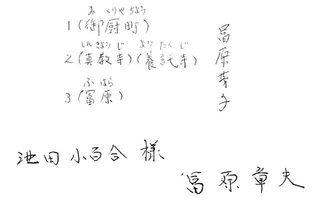 み くりや ちょう
1 (御厨町)
しんきょう じ よりたく じ
2 (真教寺) (養託寺)
ふ はら
3 (冨原)
冨原芽子
池田小百合 様
冨原章夫